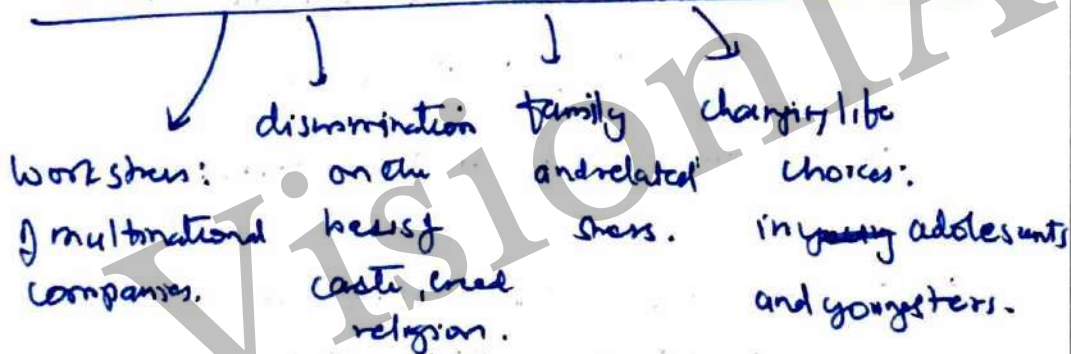 work stress:
of multinational
companies.
discrimination
on the
basis of
caste, creed
religion.
family
and related
stress.
changing life
choices:
in young adolesents
and youngsters.
VisionIA